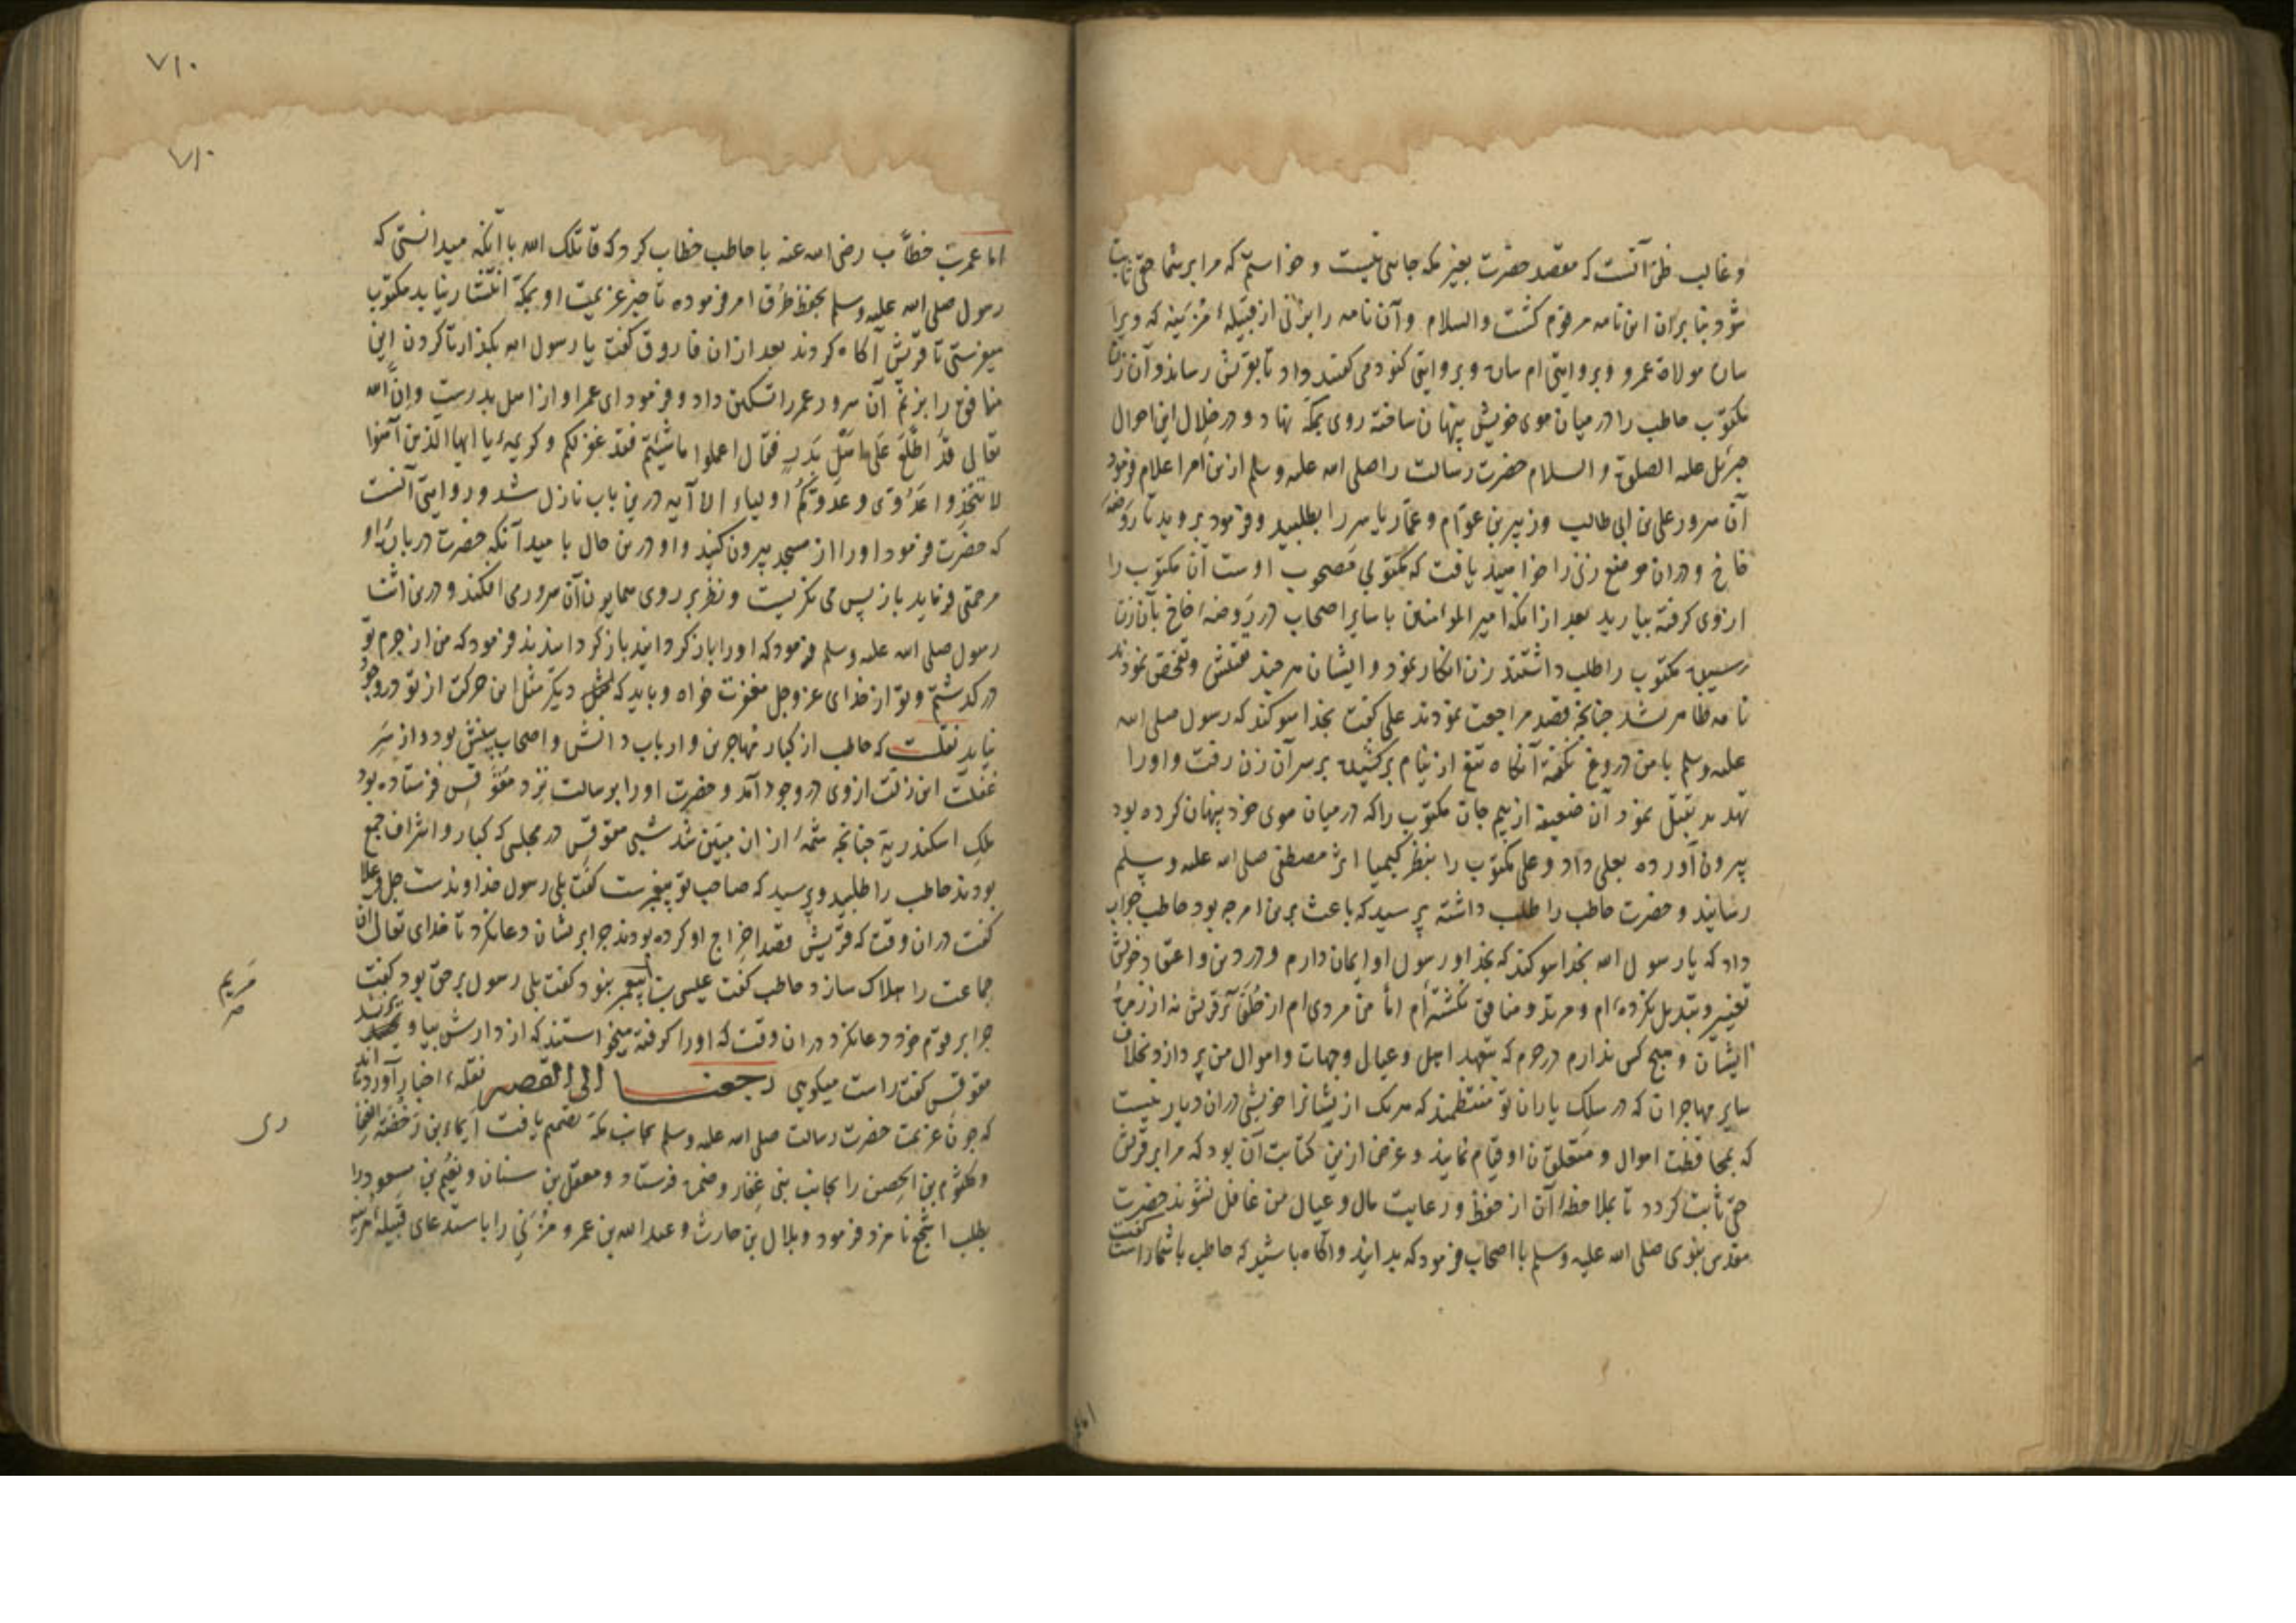 و غالب ظن آنست که مقصد حضرت بغیر مکه جائی نیست و خواستم که مرا بر شما حقی ثابت
شود بنابران این نامه مرقوم گشت والسلام و آن نامه را بزنی از قبیلهٔ مُزَینه که ویرا
ساره مولاة عمرو و بروایتی ام ساره و بروایتی کنود می گفتند داد تا بقریش رساند و آن زن
مکتوب حاطب را در میان موی خویش پنهان ساخته روی بمکه نهاد و در خلال این احوال
جبرئیل علیه الصلوة والسلام حضرت رسالت را صلی الله علیه وسلم ازین امر اعلام فرمود
آن سرور علی بن ابی طالب و زبیر بن عوام و عمار یاسر را بطلبید و فرمود بروید تا روضهٔ
خاخ و دران موضع زنی را خواهید یافت که مکتوبی مصحوب اوست آن مکتوب را
از وی گرفته بیارید بعد از انکه امیر المؤمنین با سایر اصحاب در روضهٔ خاخ بآن زن
رسیده مکتوب را طلب داشتند زن انکار نمود و ایشان هر چند تفتیش و تفحص نمودند
نامه ظاهر نشد چنانچه قصد مراجعت نمودند علی گفت بخدا سوکند که رسول صلی الله
علیه وسلم با من دروغ نگفته آنکاه تیغ از نیام برکشیده بر سر آن زن رفت و او را
تهدید بقتل نمود آن ضعیفه از بیم جان مکتوب را که در میان موی خود پنهان کرده بود
بیرون آورده بعلی داد و علی مکتوب را بنظر کیمیا اثر مصطفی صلی الله علیه وسلم
رسانید و حضرت حاطب را طلب داشته پرسید که باعث برین امر چه بود حاطب جواب
داد که یا رسول الله بخدا سوکند که بخدا و رسول او ایمان دارم و در دین و اعتقاد خویش
تغییر و تبدیل نکرده ام و مرتد و منافق نکشته ام اما من مردی ام از حلفای قریش نه از زمرهٔ
ایشان و هیچ کس ندارم در حرم که بتعهد اهل و عیال و جهات و اموال من پردازد بخلاف
سایر مهاجران که در سلک یاران تو منتظمند که هر یک از یشانرا خویشی دران دیار نیست
که بمحافظت اموال و متعلقان او قیام نماید و غرض ازین کتابت آن بود که مرا بر قریش
حق ثابت کردد تا بملاحظهٔ آن از حفظ و رعایت مال و عیال من غافل نشوند حضرت
مقدس نبوی صلی الله علیه وسلم با اصحاب فرمود که بدانید و آکاه باشید که حاطب با شما راست گفت
٧١٠
٧١٠
اما عمر بن خطاب رضی الله عنه با حاطب خطاب کرد که قاتلک الله با آنکه میدانستی که
رسول صلی الله علیه وسلم بحفظ طرق امر فرموده تا خبر عزیمت او بمکه انتشار نیابد مکتوب
میفرستی تا قریش آکاه کردند بعد ازان فاروق گفت یا رسول الله بکذار تا کردن این
منافق را بزنم آن سرور عمر را تسکین داد و فرمود ای عمر او از اهل بدرست و ان الله
تعالی قد اطلع علی اهل بدر فقال اعملوا ما شئتم فقد غفر لکم و کریمهٔ یا ایها الذین آمنوا
لا تتخذوا عدوی و عدوکم اولیاء الآیه درین باب نازل شد و روایتی آنست
که حضرت فرمود او را از مسجد بیرون کنید و او درین حال بامید آنکه حضرت در بارهٔ او
مرحمتی فرماید باز پس می نکریست و نظر بر روی همایون آن سرور می افکند و درین اثنا
رسول صلی الله علیه وسلم فرمود که او را باز کردانید باز کردانیدند فرمود که من از جرم تو
در کذشتم و تو از خدای عز و جل مغفرت خواه و باید که دیکر مثل این حرکت از تو در وجود
نیاید نقلست که حاطب از کبار مهاجرین و ارباب دانش و اصحاب بینش بود و از سر
غفلت این زلت از وی در وجود آمد و حضرت او را برسالت نزد مقوقس فرستاده بود
ملک اسکندریه چنانچه شمهٔ ازان مبین شد شبی مقوقس در مجلسی که کبار و اشراف جمع
بودند حاطب را طلبید و پرسید که صاحب تو پیغمبرست گفت بلی رسول خداوندست جل و علا
گفت دران وقت که قریش قصد اخراج او کرده بودند چرا بر یشان دعا نکرد تا خدای تعالی آن
جماعت را هلاک سازد حاطب گفت عیسی پیغمبر نبود گفت بلی رسول بر حق بود گفت
چرا بر قوم خود دعا نکرد دران وقت که او را کرفته میخواستند که از دارش بیاویزند
مقوقس گفت راست میکویی رجعنا الی القصه نقلهٔ اخبار آورده اند
که چون عزیمت حضرت رسالت صلی الله علیه وسلم بجانب مکه تصمیم یافت
و کلثوم بن الحصین را بجانب بنی غفار و ضمره فرستاد و معقل بن سنان و نعیم بن مسعود را
بطلب اشجع نامزد فرمود و بلال بن حارث و عبد الله بن عمرو مزنی را باستدعای قبیلهٔ مزینه
مریم